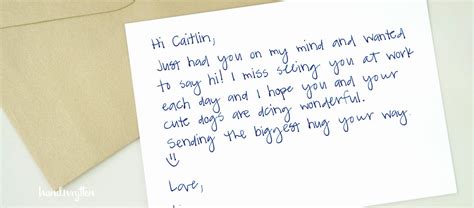 Hi Caitlin,
Just had you on my mind and wanted
to say hi! I miss seeing you at work
each day and I hope you and your
cute dogs are doing wonderful.
Sending the biggest hug your way.
Love,
handwrytten